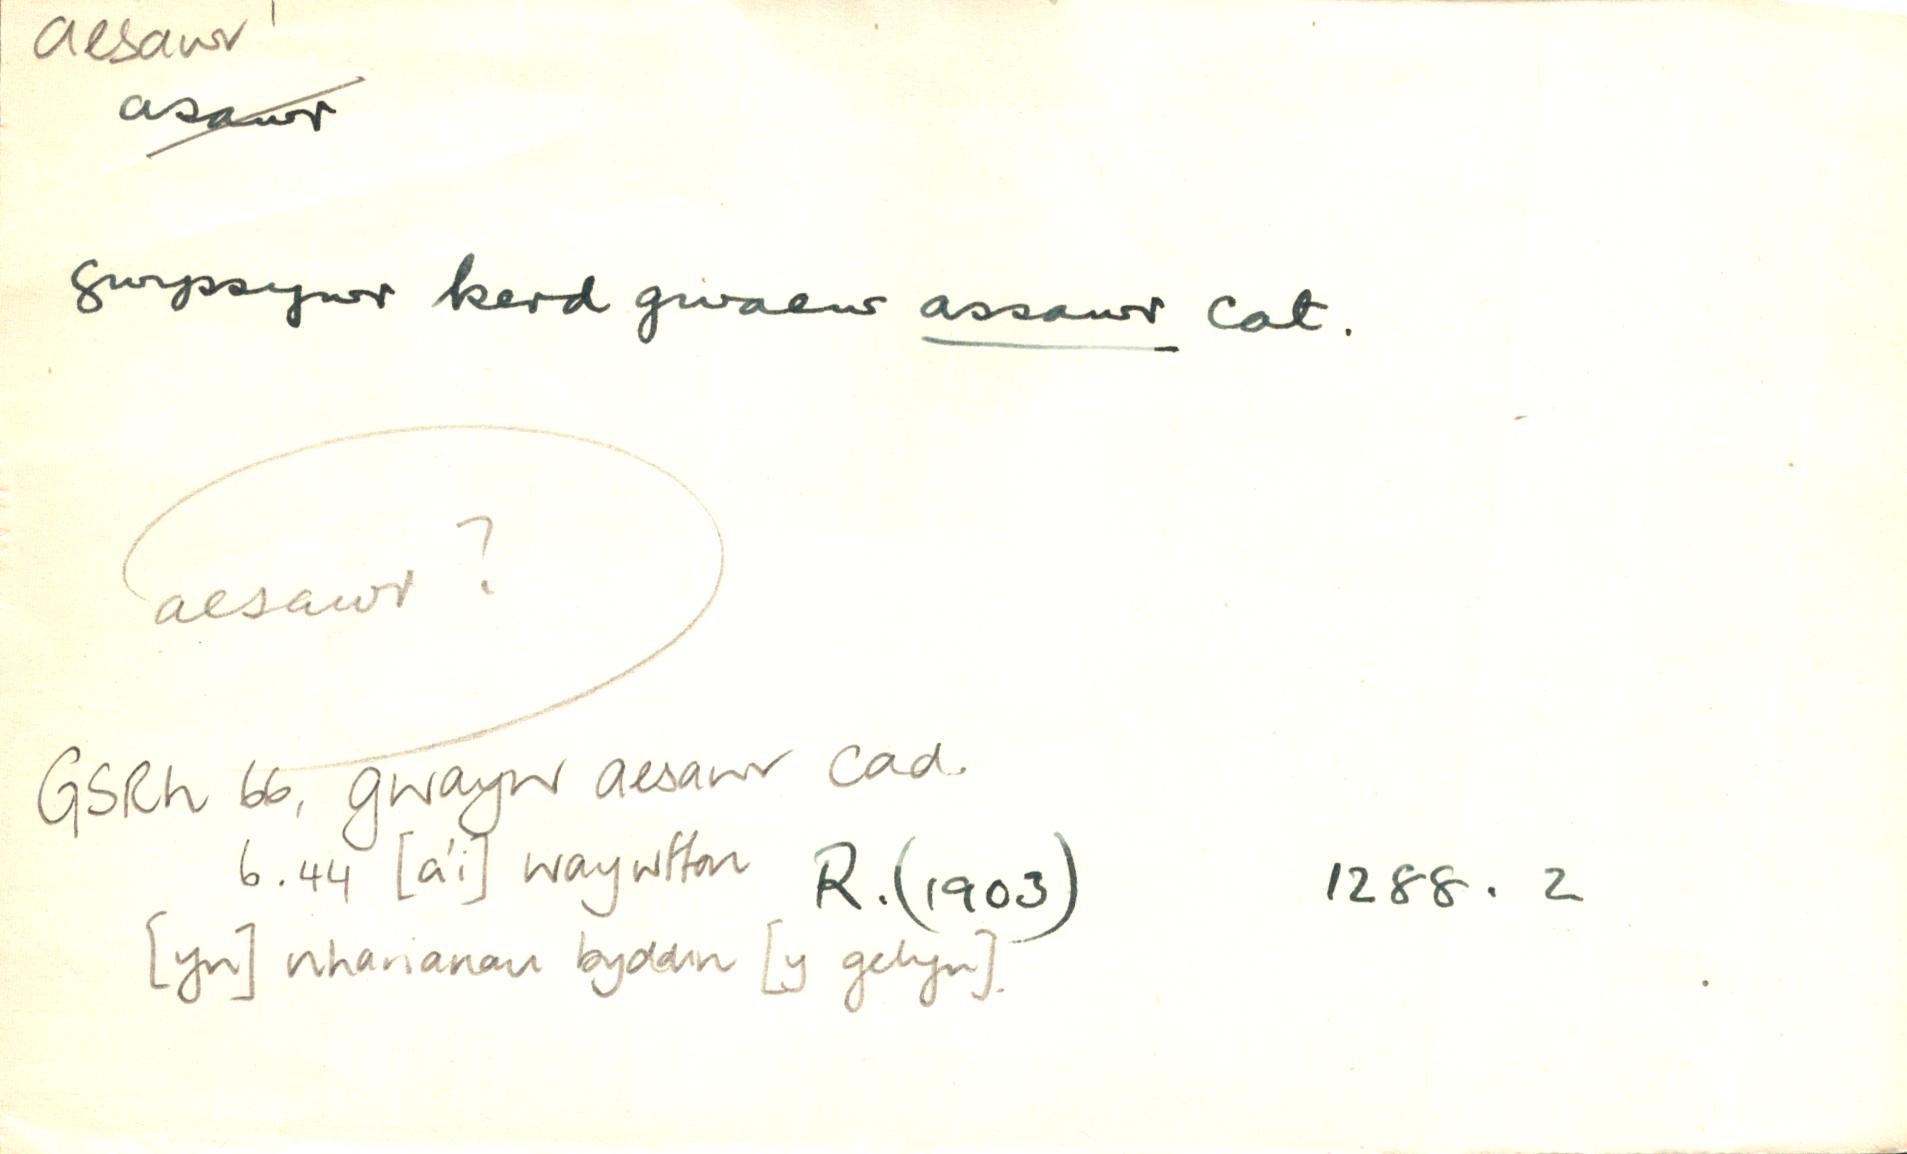 aesawr
asawr
gwyssywr kerd gwaew assawr cat.
aesawr?
GSRh 66, gwayw aesawr cad.
6.44 [a'i] waywffon R.(1903) 1288. 2
[yn] nharianau byddin [y gelyn].